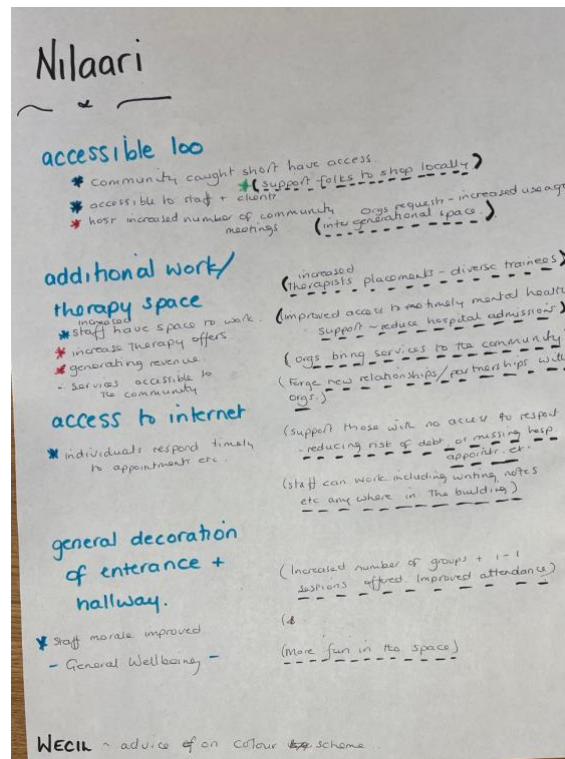 Nilaari
accessible loo
* community caught short have access.
* (support folks to shop locally)
* accessible to staff + clients
* host increased number of community meetings
orgs request - increased useage
(inter generational space.)
additional work/
therapy space
increased
* staff have space to work.
* increase therapy offers
* generating revenue.
- services accessible to
the community
increased
(Therapists placements - diverse trainees)
(improved access to timely mental health
support - reduce hospital admissions)
(orgs bring services to the community)
(Forge new relationships/partnerships with
orgs.)
access to internet
* individuals respond timely
to appointments etc.
(support those with no access to respond
- reducing risk of debt, or missing hosp
appointr. et
(staff can work including writing notes
etc any where in the building)
general decoration
of enterance +
hallway.
* Staff morale improved
- General Wellbeing -
(Increased number of groups + 1-1
sessions offered. Improved attendance)
(More fun in the space)
WECIL - advice on colour scheme.